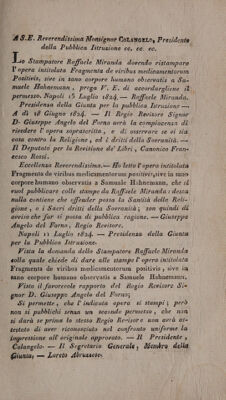 A S. E. Reverendissima Monsignor COLANGELO, Presidente
della Pubblica Istruzione ec. ec. ec.
Lo Stampatore Raffaele Miranda dovendo ristampare
l'opera intitolata Fragmenta de viribus medicamentorum
Positivis, sive in sano corpore humano observatis a Samuele
Hahnemann, prega V. E. di accordargliene il
permesso. Napoli 15 Luglio 1824. — Raffaele Miranda.
Presidenza della Giunta per la pubblica Istruzione —
A dì 18 Giugno 1824. — Il Regio Revisore Signor
D. Giuseppe Angelo del Forno avrà la compiacenza di
rivedere l'opera soprascritta, e di osservare se vi sia
cosa contro la Religione, ed i dritti della Sovranità. —
Il Deputato per la Revisione de' Libri, Canonico Francesco
Rossi.
Eccellenza Reverendissima. — Ho letto l'opera intitolata
Fragmenta de viribus medicamentorum positivis, sive in sano
corpore humano observatis a Samuele Hahnemann, che si
vuol pubblicare colle stampe da Raffaele Miranda: dessa
nulla contiene che offender possa la Santità della Religione,
e i Sacri dritti della Sovranità; son quindi di
avviso che far si possa di pubblica ragione. — Giuseppe
Angelo del Forno, Regio Revisore.
Napoli 11 Luglio 1824. — Presidenza della Giunta
per la Pubblica Istruzione.
Vista la domanda dello Stampatore Raffaele Miranda
colla quale chiede di dare alle stampe l'opera intitolata
Fragmenta de viribus medicamentorum positivis, sive in
sano corpore humano observatis a Samuele Hahnemann.
Visto il favorevole rapporto del Regio Revisore Signor
D. Giuseppe Angelo del Forno;
Si permette, che l'indicata opera si stampi; però
non si pubblichi senza un secondo permesso, che non
si darà se prima lo stesso Regio Revisore non avrà attestato
di aver riconosciuto nel confronto uniforme la
impressione all'originale approvato. — Il Presidente,
Colangelo. — Il Segretario Generale, Membro della
Giunta, — Loreto Abruzzese.